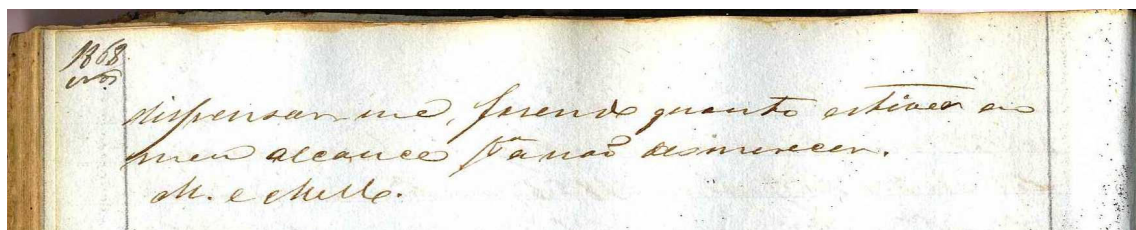 1868
dispensar-me, fasendo quanto estiver ao
meu alcance pª não desmerecer.
M. e Mello.